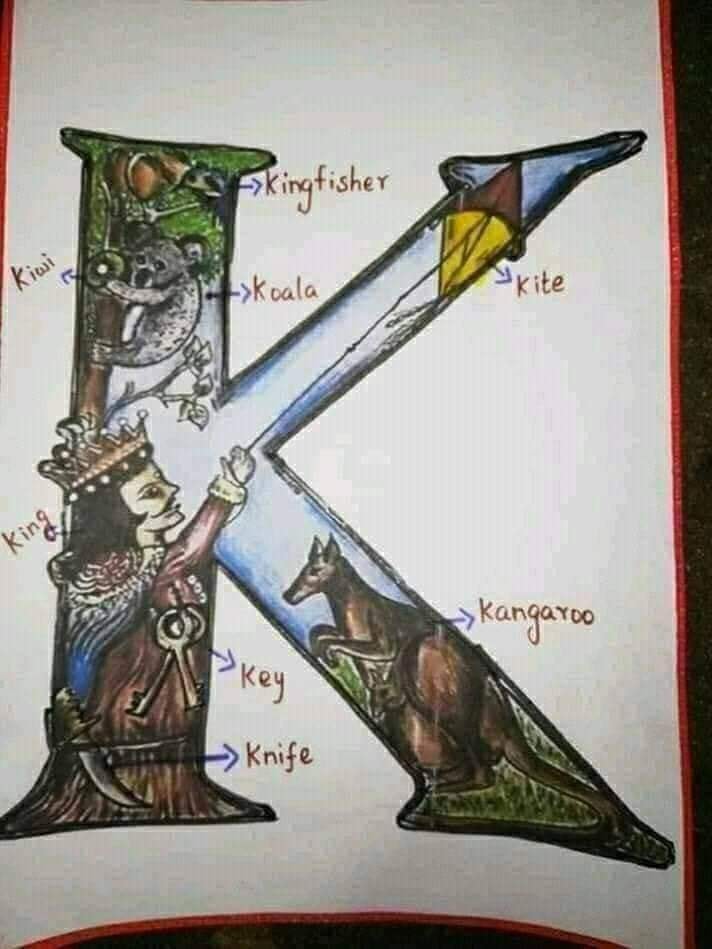 Kingfisher
Kiwi
Koala
Kite
King
Kangaroo
Key
Knife